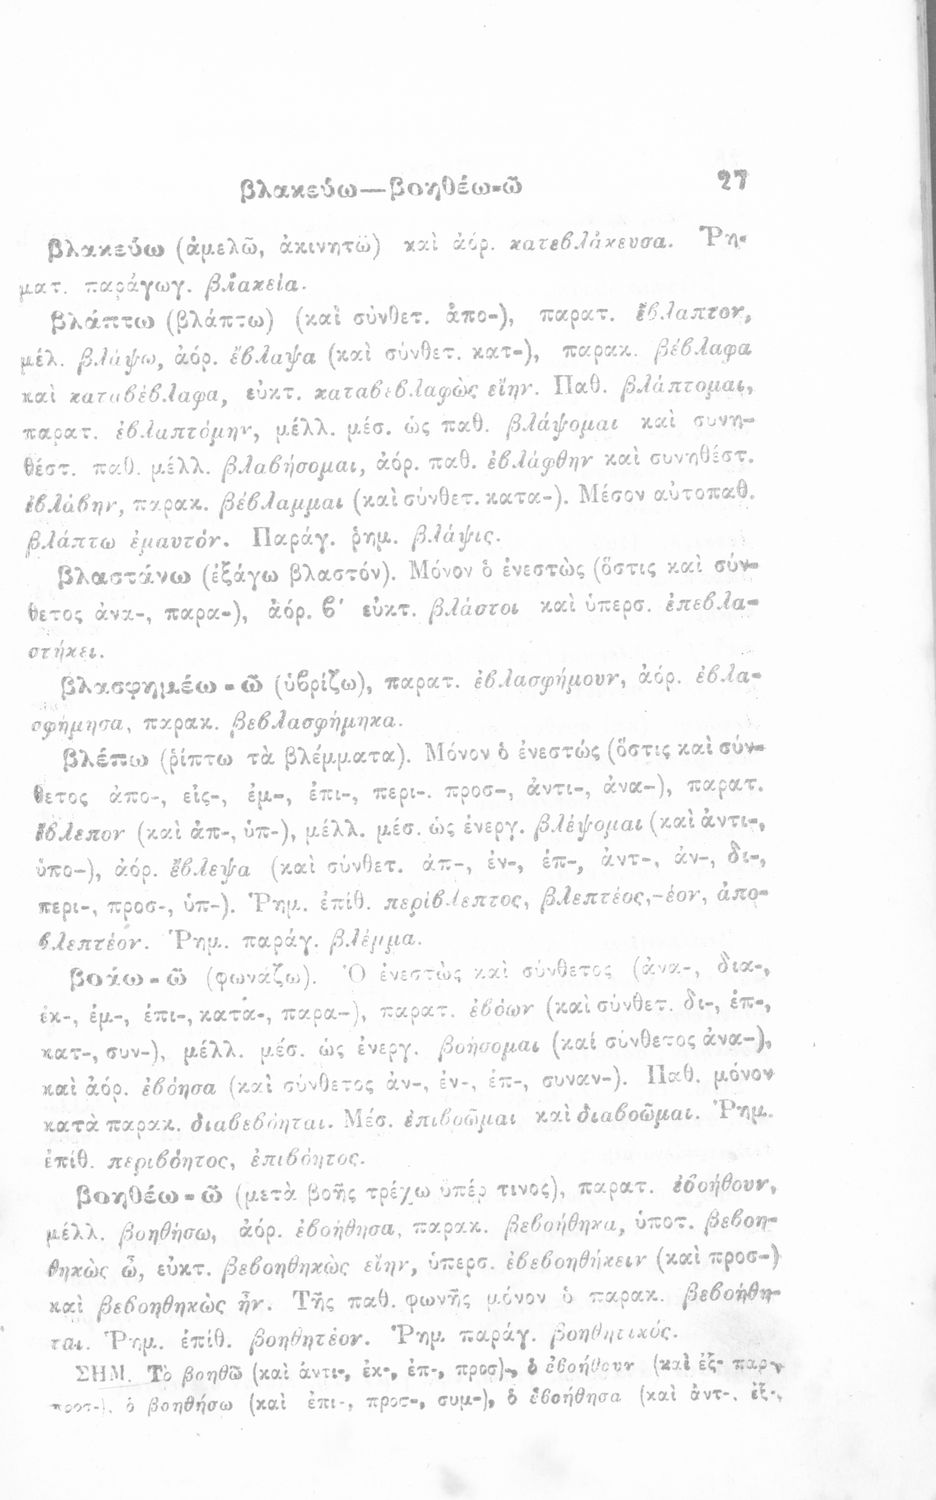 βλακεύω—βοηθέω-ῶ 27
βλακεύω (ἀμελῶ, ἀκινητῶ) καὶ ἀόρ. κατεβλάκευσα. Ῥη-
ματ. παράγωγ. βλακεία.
βλάπτω (βλάπτω) (καὶ σύνθετ. ἀπο-), παρατ. ἔβλαπτον,
μέλ. βλάψω, ἀόρ. ἔβλαψα (καὶ σύνθετ. κατ-), παρακ. βέβλαφα
καὶ καταβέβλαφα, εὐκτ. καταβεβλαφὼς εἴην. Παθ. βλάπτομαι,
παρατ. ἐβλαπτόμην, μέλλ. μέσ. ὡς παθ. βλάψομαι καὶ συνη-
θέστ. παθ. μέλλ. βλαβήσομαι, ἀόρ. παθ. ἐβλάφθην καὶ συνηθέστ.
ἐβλάβην, παρακ. βέβλαμμαι (καὶ σύνθετ. κατα-). Μέσον αὐτοπαθ.
βλάπτω ἐμαυτόν. Παράγ. ῥημ. βλάψις.
βλαστάνω (ἐξάγω βλαστόν). Μόνον ὁ ἐνεστὼς (ὅστις καὶ σύν-
θετος ἀνα-, παρα-), ἀόρ. β' εὐκτ. βλάστοι καὶ ὑπερσ. ἐπεβλα-
στήκει.
βλασφημέω-ῶ (ὑβρίζω), παρατ. ἐβλασφήμουν, ἀόρ. ἐβλα-
σφήμησα, παρακ. βεβλασφήμηκα.
βλέπω (ῥίπτω τὰ βλέμματα). Μόνον ὁ ἐνεστώς (ὅστις καὶ σύν-
θετος ἀπο-, εἰς-, ἐμ-, ἐπι-, περι-. προσ-, ἀντι-, ἀνα-), παρατ.
ἔβλεπον (καὶ ἀπ-, ὑπ-), μέλλ. μέσ. ὡς ἐνεργ. βλέψομαι (καὶ ἀντι-,
ὑπο-), ἀόρ. ἔβλεψα (καὶ σύνθετ. ἀπ-, ἐν-, ἐπ-, ἀντ-, ἀν-, δι-,
περι-, προσ-, ὑπ-). Ῥημ. ἐπίθ. περίβλεπτος, βλεπτέος,-έον, ἀπο-
βλεπτέον. Ῥημ. παράγ. βλέμμα.
βοάω-ῶ (φωνάζω). Ὁ ἐνεστὼς καὶ σύνθετος (ἀνα-, δια-,
ἐκ-, ἐμ-, ἐπι-, κατα-, παρα-), παρατ. ἐβόων (καὶ σύνθετ. δι-, ἐπ-,
κατ-, συν-), μέλλ. μέσ. ὡς ἐνεργ. βοήσομαι (καί σύνθετος ἀνα-),
καὶ ἀόρ. ἐβόησα (καὶ σύνθετος ἀν-, ἐν-, ἐπ-, συναν-). Παθ. μόνον
κατὰ παρακ. διαβεβόηται. Μέσ. ἐπιβοῶμαι καὶ διαβοῶμαι. Ῥημ.
ἐπίθ. περιβόητος, ἐπιβόητος.
βοηθέω-ῶ (μετὰ βοῆς τρέχω ὑπέρ τινος), παρατ. ἐβοήθουν,
μέλλ. βοηθήσω, ἀόρ. ἐβοήθησα, παρακ. βεβοήθηκα, ὑποτ. βεβοη-
θηκὼς ὦ, εὐκτ. βεβοηθηκὼς εἴην, ὑπερσ. ἐβεβοηθήκειν (καὶ προσ-)
καὶ βεβοηθηκὼς ἦν. Τῆς παθ. φωνῆς μόνον ὁ παρακ. βεβοήθη-
ται. Ῥημ. ἐπίθ. βοηθητέον. Ῥημ. παράγ. βοηθητικός.
ΣΗΜ. Τὸ βοηθῶ (καὶ ἀντι-, ἐκ-, ἐπ-, προσ)-, ὁ ἐβοήθουν (καὶ ἐξ- παρ-,
προσ-), ὁ βοηθήσω (καὶ ἐπι-, προσ-, συμ-), ὁ ἐβοήθησα (καὶ ἀντ-, ἐξ-,